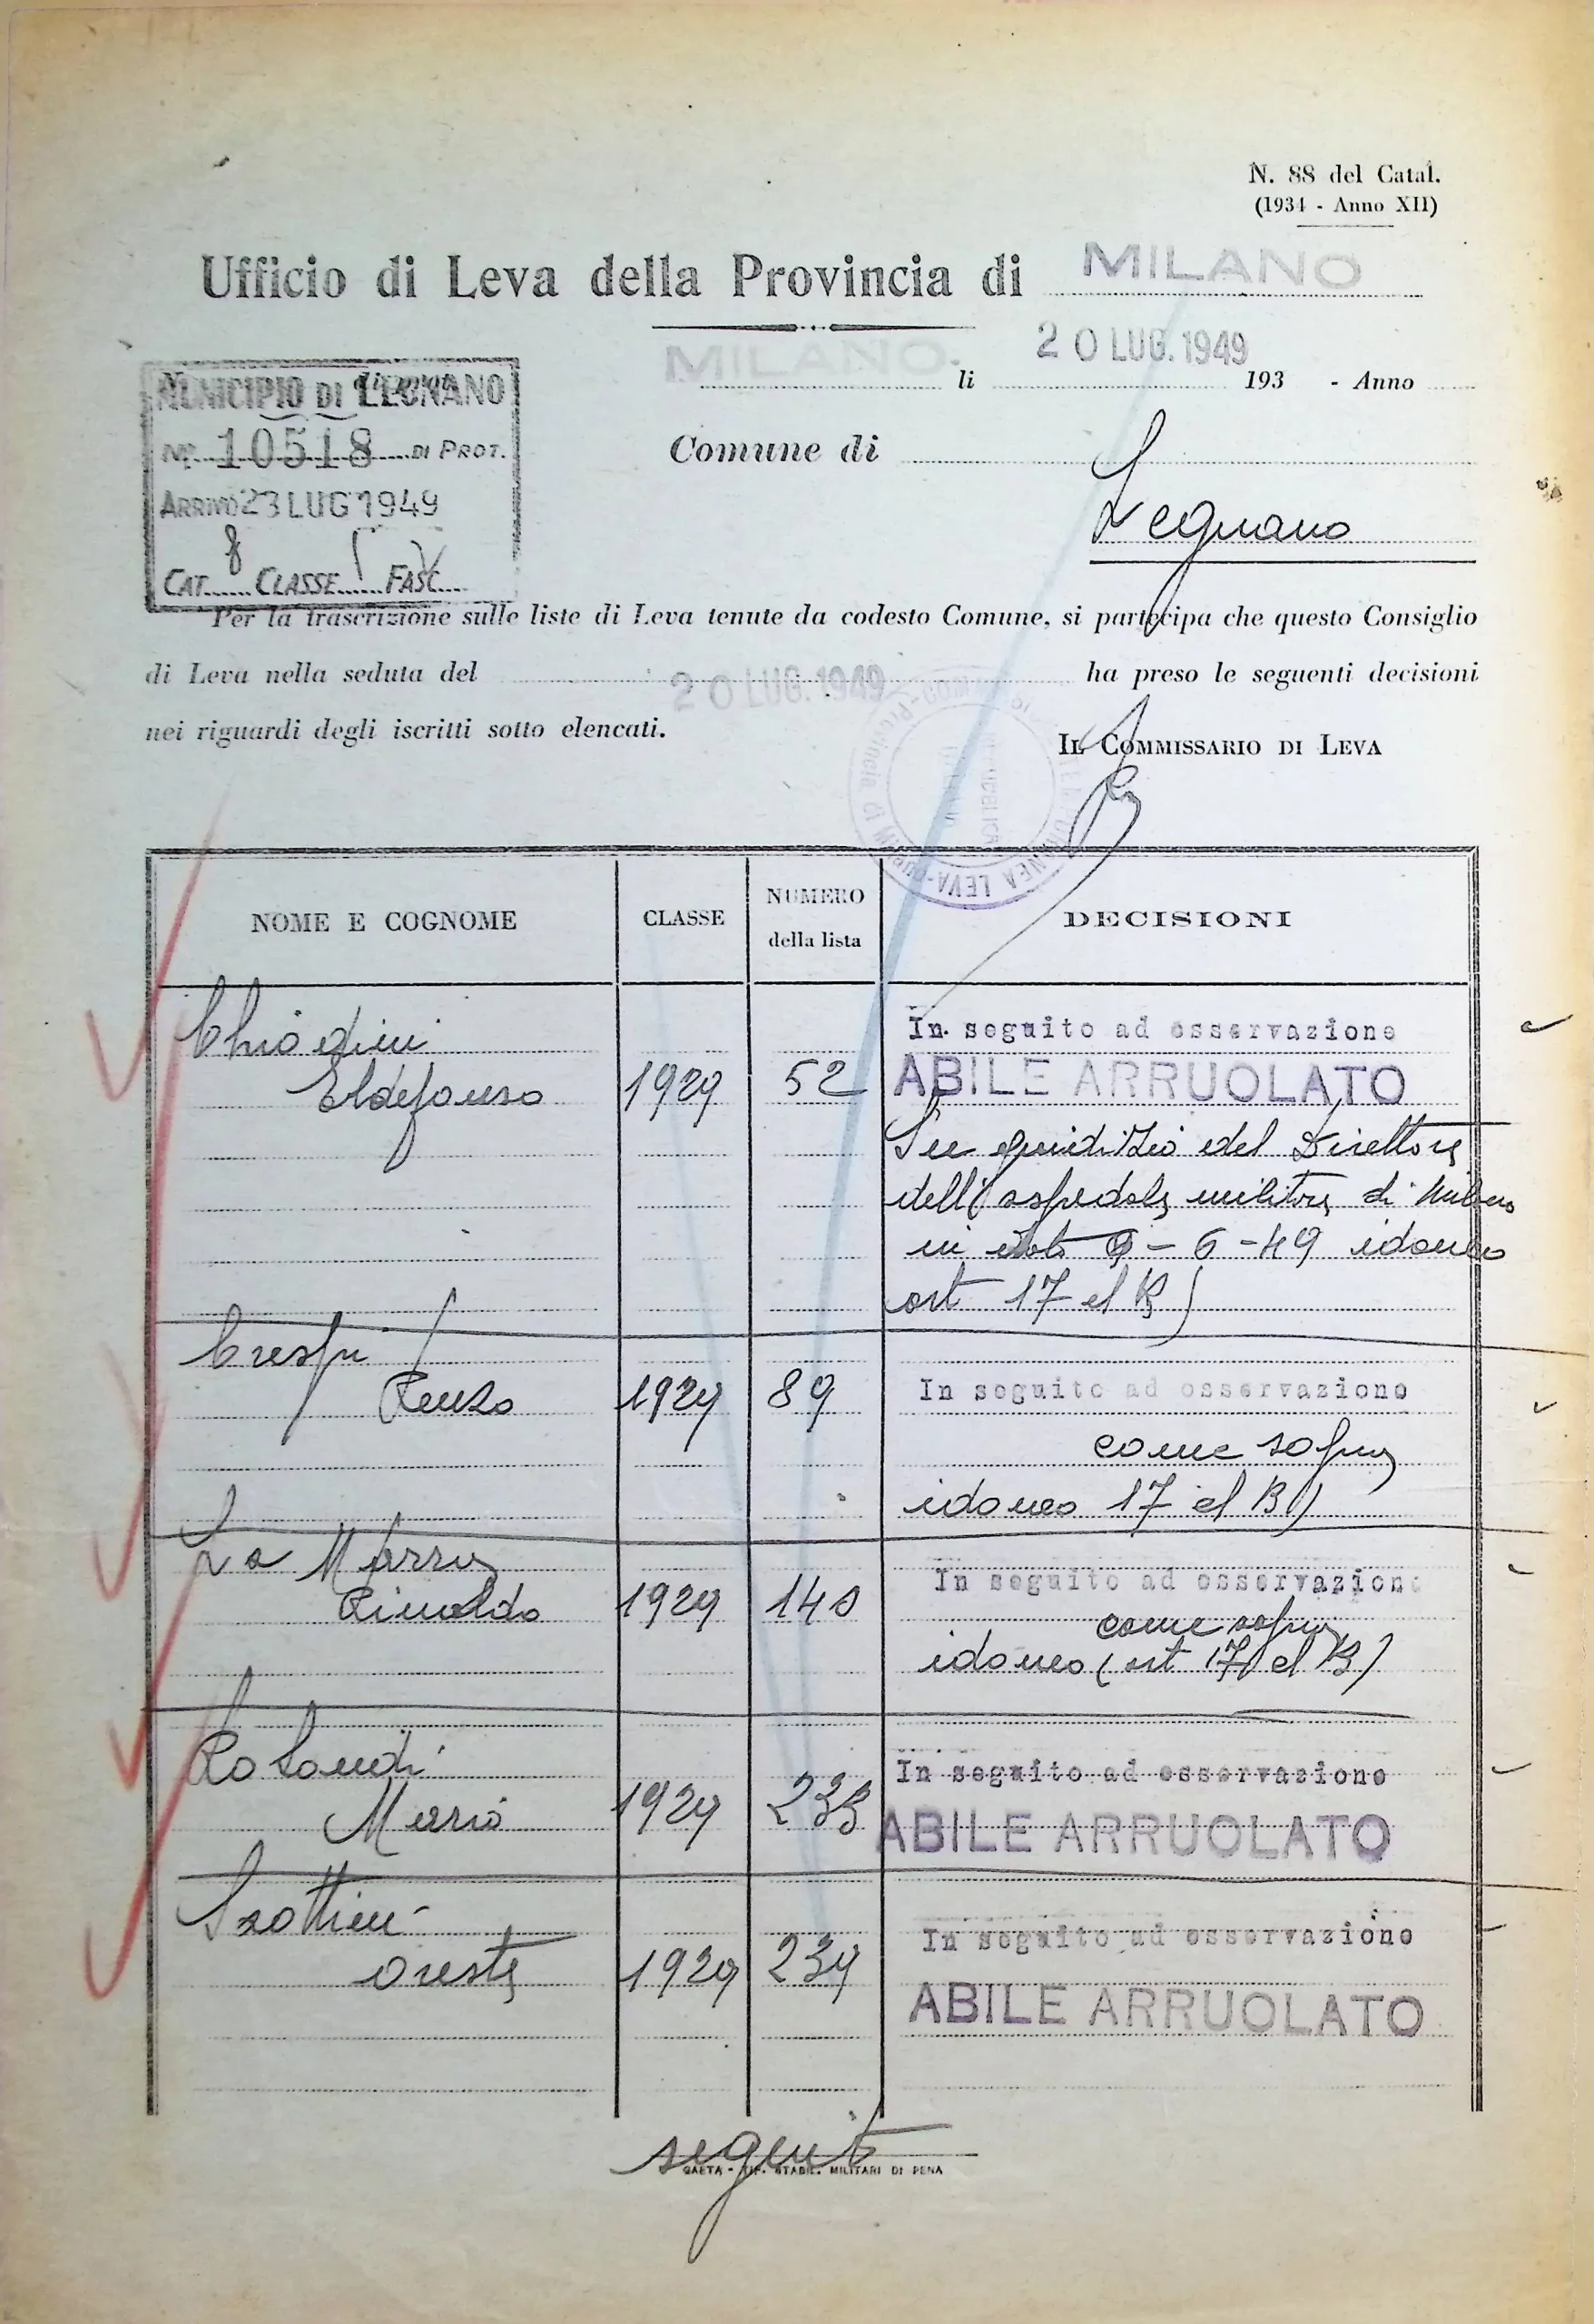 N. 88 del Catal.
(1934 - Anno XII)
Ufficio di Leva della Provincia di MILANO
MILANO. li 20 LUG. 1949 193 - Anno
MUNICIPIO DI LEGNANO
N. 10518 DI PROT.
ARRIVO 23 LUG 1949
CAT. 8 CLASSE FASC.
Comune di
Legnano
Per la trascrizione sulle liste di Leva tenute da codesto Comune, si partecipa che questo Consiglio
di Leva nella seduta del 20 LUG. 1949 ha preso le seguenti decisioni
nei riguardi degli iscritti sotto elencati.
IL COMMISSARIO DI LEVA
NOME E COGNOME CLASSE NUMERO della lista DECISIONI
Chiodini In seguito ad osservazione
Ildefonso 1929 52 ABILE ARRUOLATO
Su giudizio del Direttore
dell'ospedale militare di Milano
in data 9-6-49 idoneo
art 17 el B)
Crespi
Renzo 1929 89 In seguito ad osservazione
come sopra
idoneo 17 el B)
La Marra In seguito ad osservazione
Rinaldo 1929 140 come sopra
idoneo (art 17 el B)
Rolandi In seguito ad osservazione
Mario 1929 233 ABILE ARRUOLATO
In seguito ad osservazione
Oreste 1929 239 ABILE ARRUOLATO
segue
GAETA - TIP. STABIL. MILITARI DI PENA